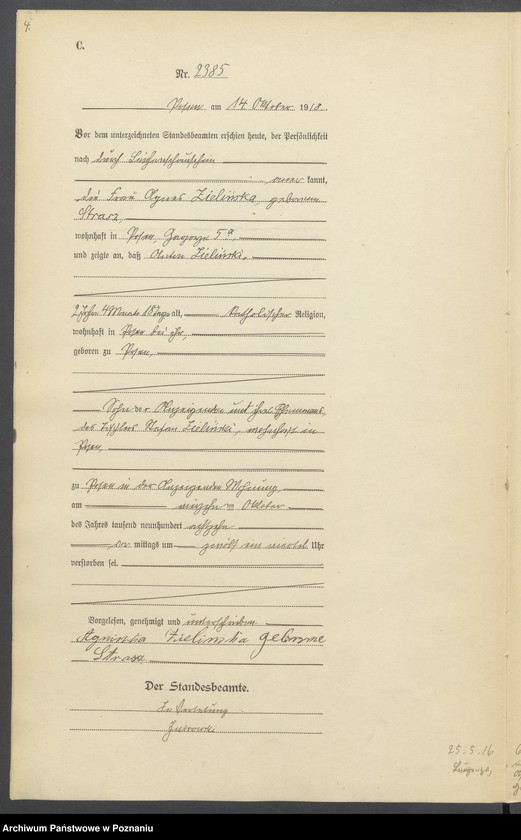 4.
C.
Nr. 2385
Posen am 14 Oktober 1918.
Vor dem unterzeichneten Standesbeamten erschien heute, der Persönlichkeit
nach durch
kannt,
die Frau Agnes Zielinska, geborene
Strasz,
wohnhaft in Posen, 5a,
und zeigte an, daß Zielinski,
2 Jahre 4 Monate 18 Tage alt, katholischer Religion,
wohnhaft in Posen bei ihr,
geboren zu Posen,
Sohn der Anzeigenden und ihres Ehemannes,
des Tischlers Stefan Zielinski, wohnhaft in
Posen,
zu Posen in der Anzeigenden Wohnung,
am vierzehn ten Oktober
des Jahres tausend neunhundert achtzehn
vor mittags um zwölf ein viertel Uhr
verstorben sei.
Vorgelesen, genehmigt und unterschrieben
Agnieszka Zielinska geborene
Der Standesbeamte.
In Vertretung
25-5-16
Archiwum Państwowe w Poznaniu